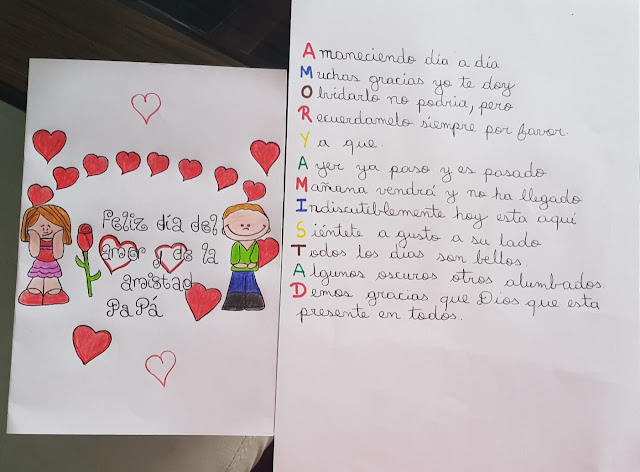 Feliz día del
amor y de la
amistad
PaPá
Amaneciendo dia a día
Muchas gracias yo te doy
Olvidarlo no podria, pero
Recuerdamelo siempre por favor.
Ya que.
Ayer ya paso y es pasado
Mañana vendrá y no ha llegado
Indiscutiblemente hoy esta aquí
Siéntete a gusto a su lado
Todos los dias son bellos.
Algunos oscuros otros alumbrados.
Demos gracias que Dios que esta
presente en todos.